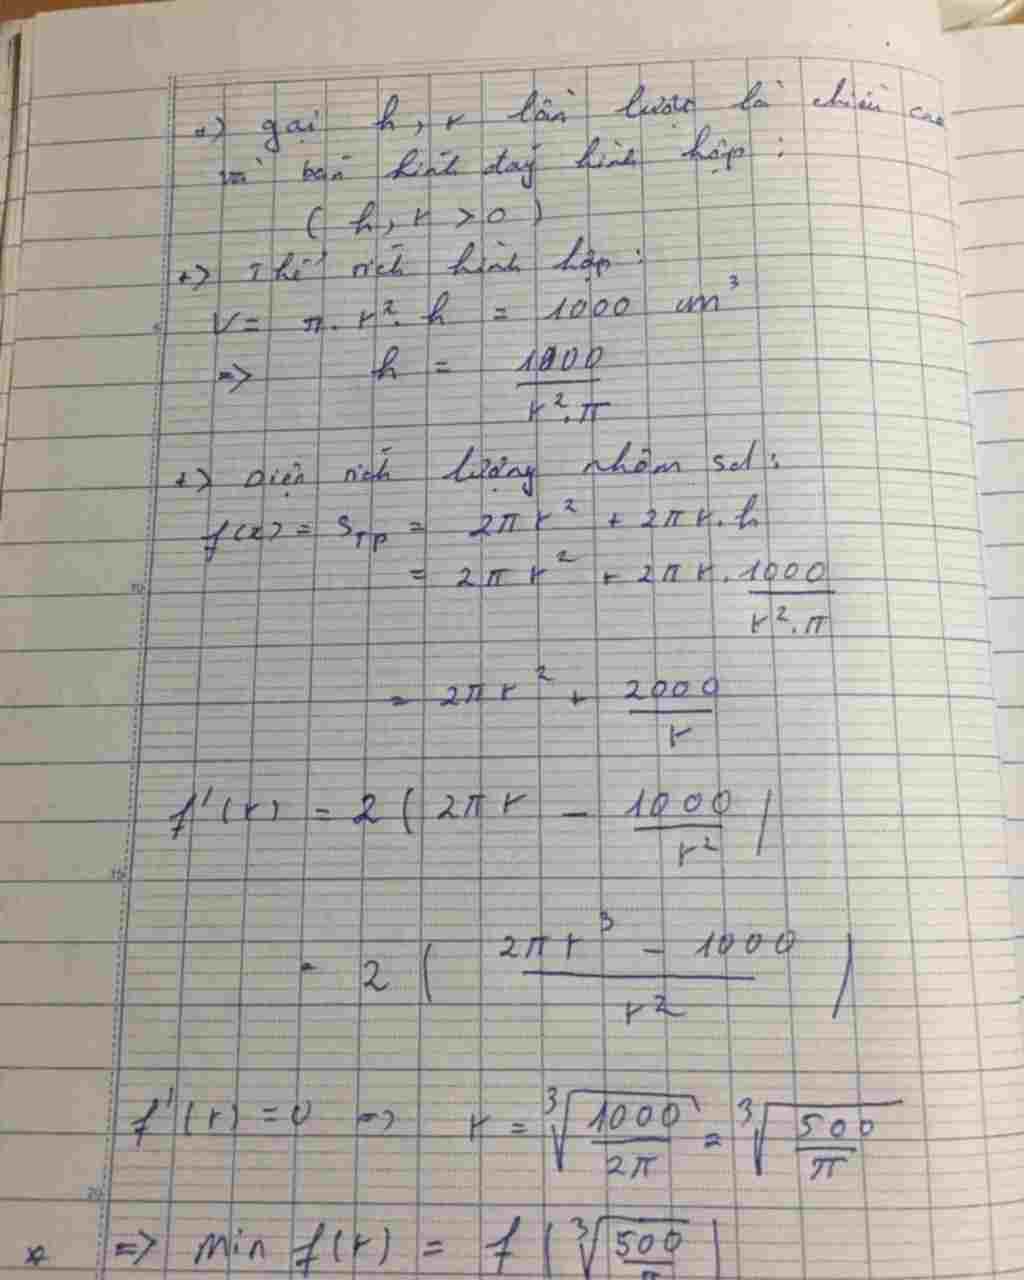 +) gọi h, r lần lượt là chiều cao
và bán kính đáy hình hộp :
( h, r > 0 )
+) Thể tích hình hộp :
V = π. r². h = 1000 cm³
=> h = 1000 / r².π
+) Diện tích lượng nhôm sd :
f(x) = S_TP = 2πr² + 2πr.h
= 2πr² + 2πr. 1000 / r².π
= 2πr² + 2000 / r
f'(r) = 2 ( 2πr - 1000 / r² )
= 2 ( 2πr³ - 1000 / r² )
f'(r) = 0 => r = ∛(1000 / 2π) = ∛(500 / π)
=> Min f(r) = f ( ∛(500 / π) )